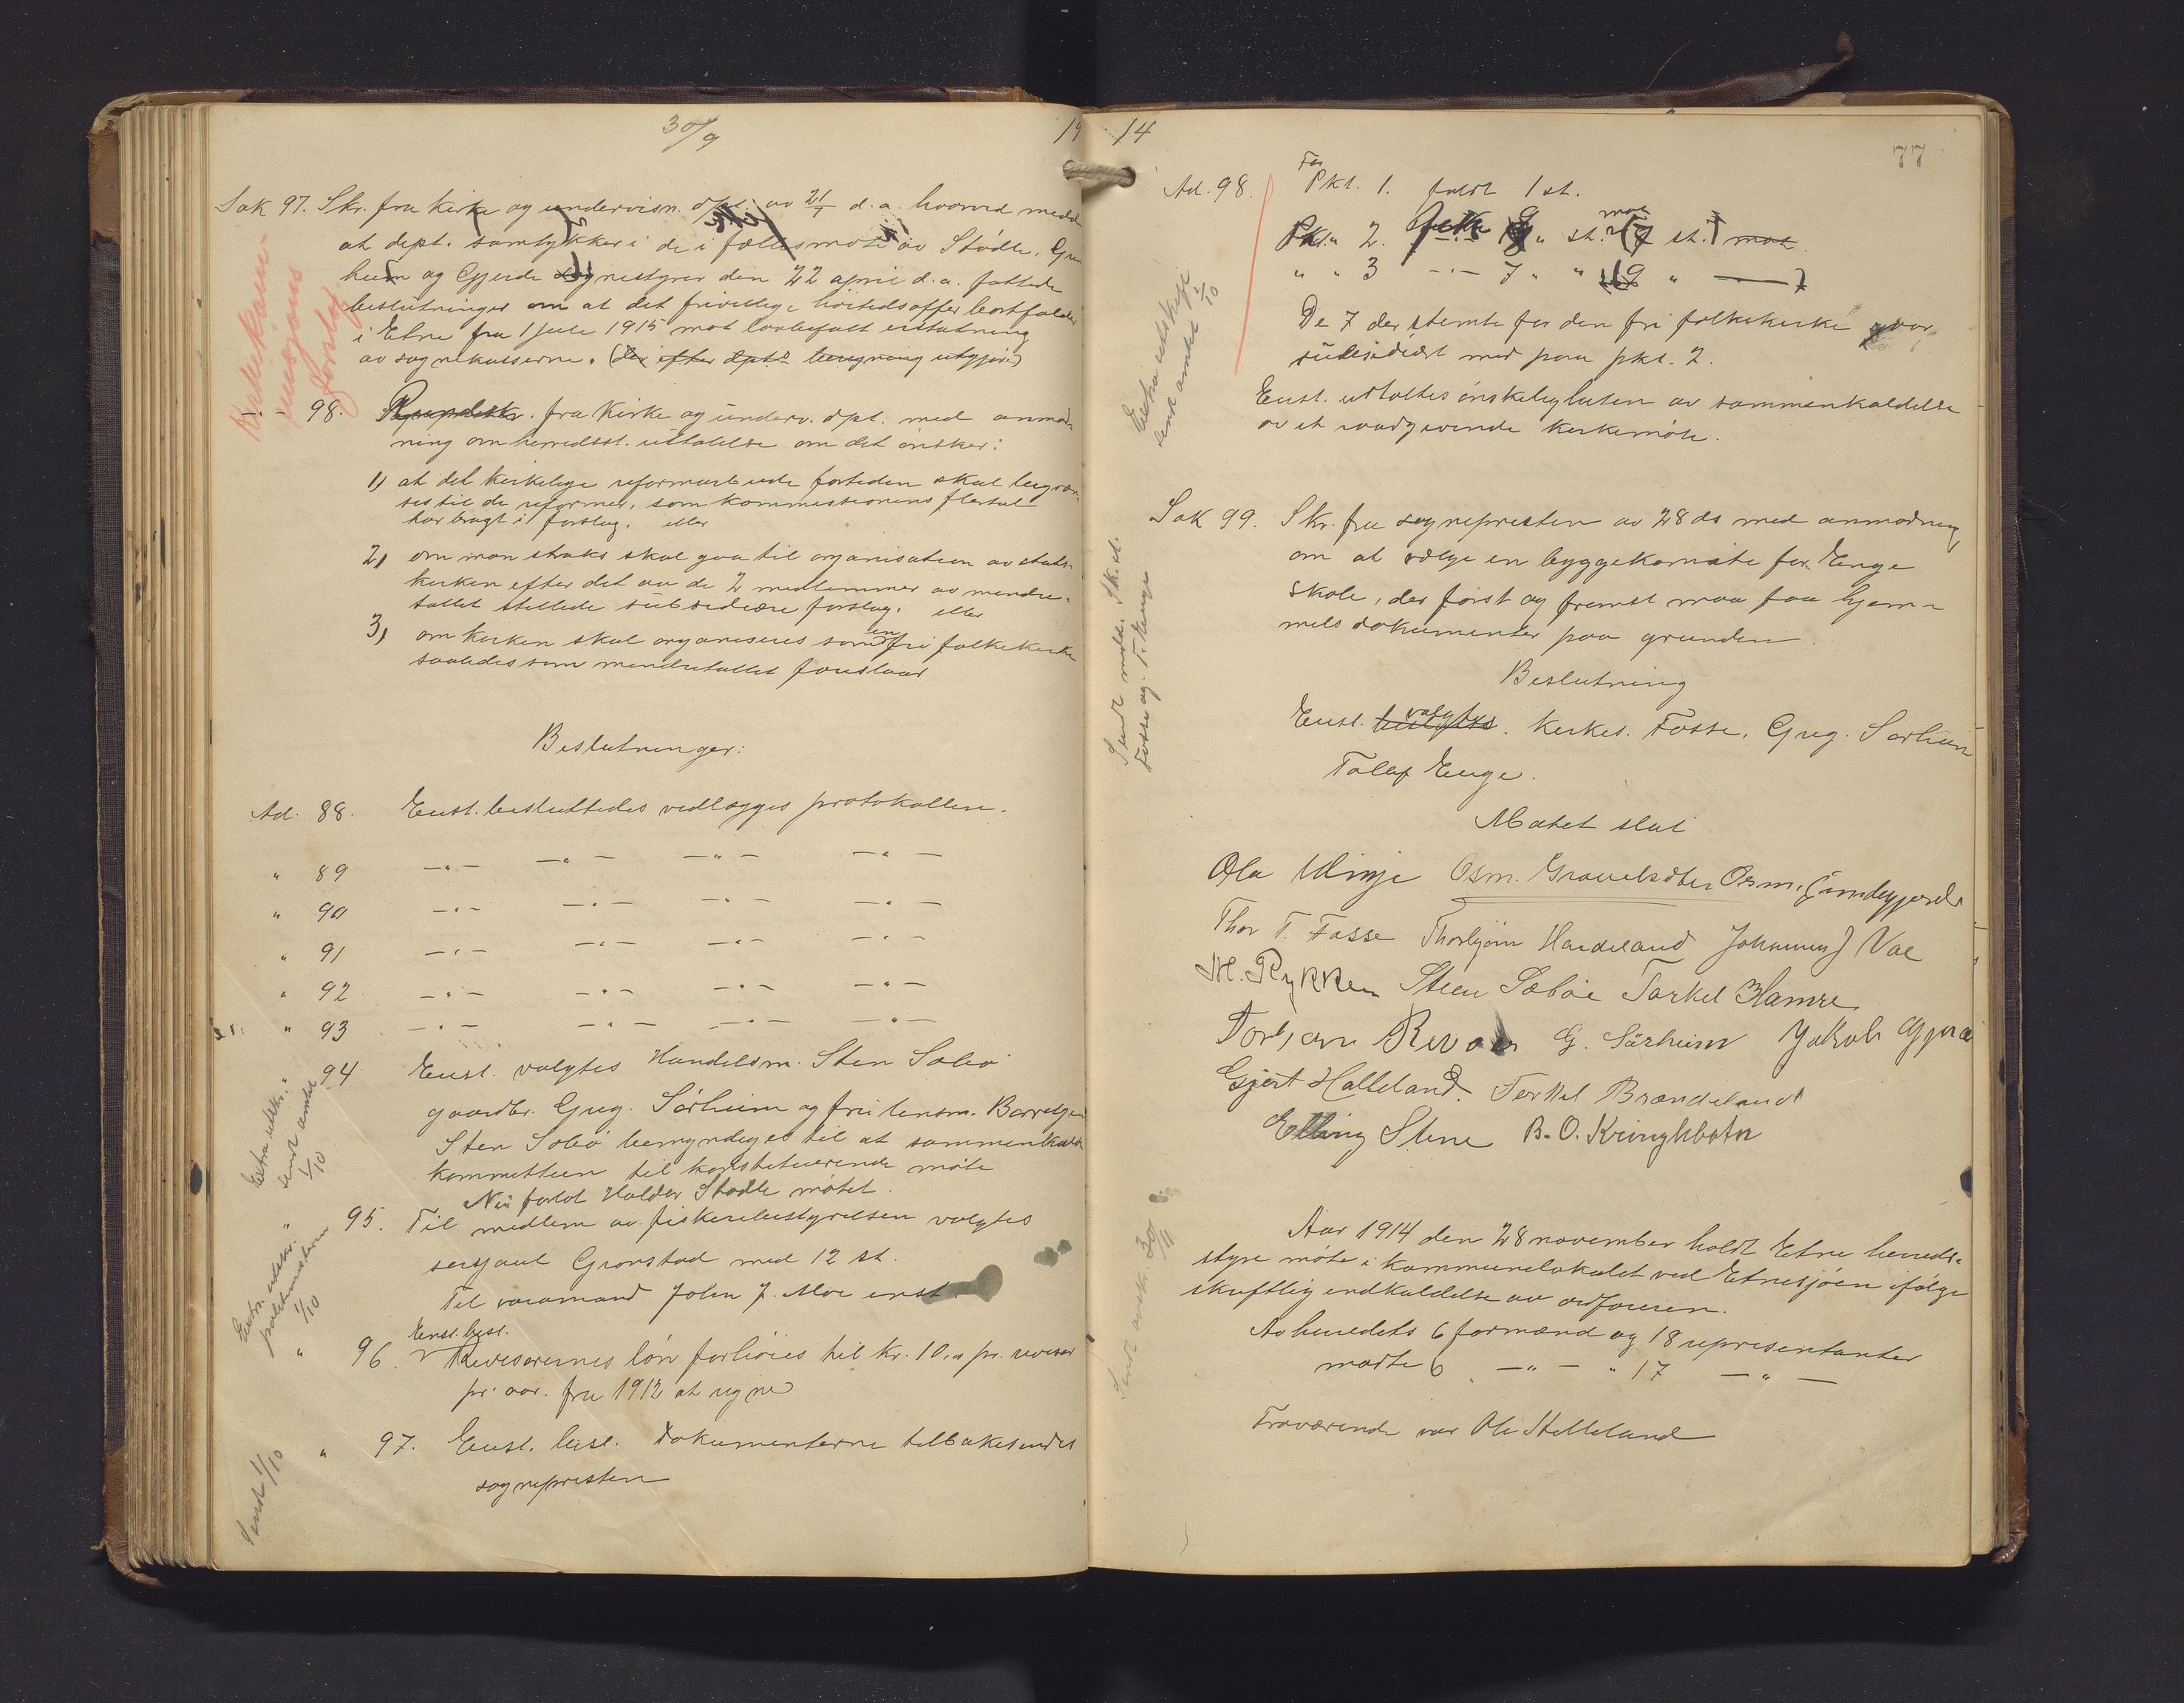 30/9 19
Sak 97. Skr. fra Kirke og undervisn. dpt. av 21/7 d.a. hvorved medd
at dept. samtykker i de i fællesmøte av Stødle, Grin
heim og Gjerde sognestyrer den 22 april d.a. fattede
beslutninger om at det frivillige høitidsoffer bortfalder
i Etne fra 1 juli 1915 mot lovbefalt erstatning
av sognekasserne. (der efter dpts beregning utgjør)
Kirkekom-
misjons
forslag
" 98. Rundskr. fra Kirke og underv. dpt. med anmod-
ning om herredsst. uttalelse om det ønsker:
1) at det kirkelige reformarbeide fortiden skal begræn-
ses til de reformer, som kommissionens flertal
har bragt i forslag, eller
2) om man straks skal gaa til organisation av stats-
kirken efter det av de 2 medlemmer av mindre-
tallet stillede subsidiære forslag, eller
3) om kirken skal organiseres som en fri folkekirke
saaledes som mindretallet foreslaar
Beslutninger:
Ad. 88. Enst. besluttedes vedlægges protokollen.
" 89 —"— —"— —"— —"—
" 90 —"— —"— —"— —"—
" 91 —"— —"— —"— —"—
" 92 —"— —"— —"— —"—
" 93 —"— —"— —"— —"—
" 94 Enst. valgtes Handelsm. Sten Sæbø
gaardbr. Greg. Sørheim og fru lensm. Borrelgen
Sten Sæbø bemyndiges til at sammenkalde
kommitteen til konstituerende møte
Nu forlot Haldor Stødle møtet.
Extra utskr.
sendt amtet
1/10
" 95. Til medlem av fiskeribestyrelsen valgtes
sersjant Grønstad med 12 st.
Til varamand John J. Moe enst.
Extra utskr.
politimesteren
1/10
Enst. besl.
" 96. Revisorernes løn forhøies til kr. 10,00 pr. revisor
pr. aar. fra 1912 at regne
" 97. Enst. besl. Dokumenterne tilbakesendes
sognepresten
Sendt 1/10
14
77
Ad. 98. For Pkt. 1. faldt 1 st.
Pkt. 2. " st. mot (7 st.) mot
" " 3 —"— 7 " " (9 " —)
De 7 der stemte for den fri folkekirke var
subsidiært med paa pkt. 2.
Enst. uttaltes ønskeligheten av sammenkaldelse
av et raadgivende kirkemøte.
Extra utskrift
sendt amtet 1/10
Sak 99. Skr. fra sognepresten av 28 ds med anmodning
om at vælge en byggekomite for Enge
skole, der først og fremst maa faa hjem-
melsdokumenter paa grunden.
Beslutning
Enst. valgtes. Kirkes. Fosse, Greg. Sørheim
Tollef Enge.
Møtet slut
Sendt medd. Sk.st.
Fosse og T. Enge
Ola Vinje Osm. Grauelsæter Osm. Grindegjerde
Thor T. Fosse Thorbjørn Handeland Johannes J Vae
M. Rykken Sten Sæbøe Torkel Hamre
Torbjørn G. Sørheim Jakob Gjerde
Gjert Halleland. Torkel Brændeland
Elling Stene B. O. Kringlebotn
Aar 1914 den 28 november holdt Etne herreds-
styre møte i kommunelokalet ved Etnesjøen ifølge
skriftlig indkaldelse av ordføreren.
Av herredets 6 formænd og 18 representanter
møtte 6 —"— " 17 —"—
Fraværende var Ole Helleland
Sendt avskr. 30/11